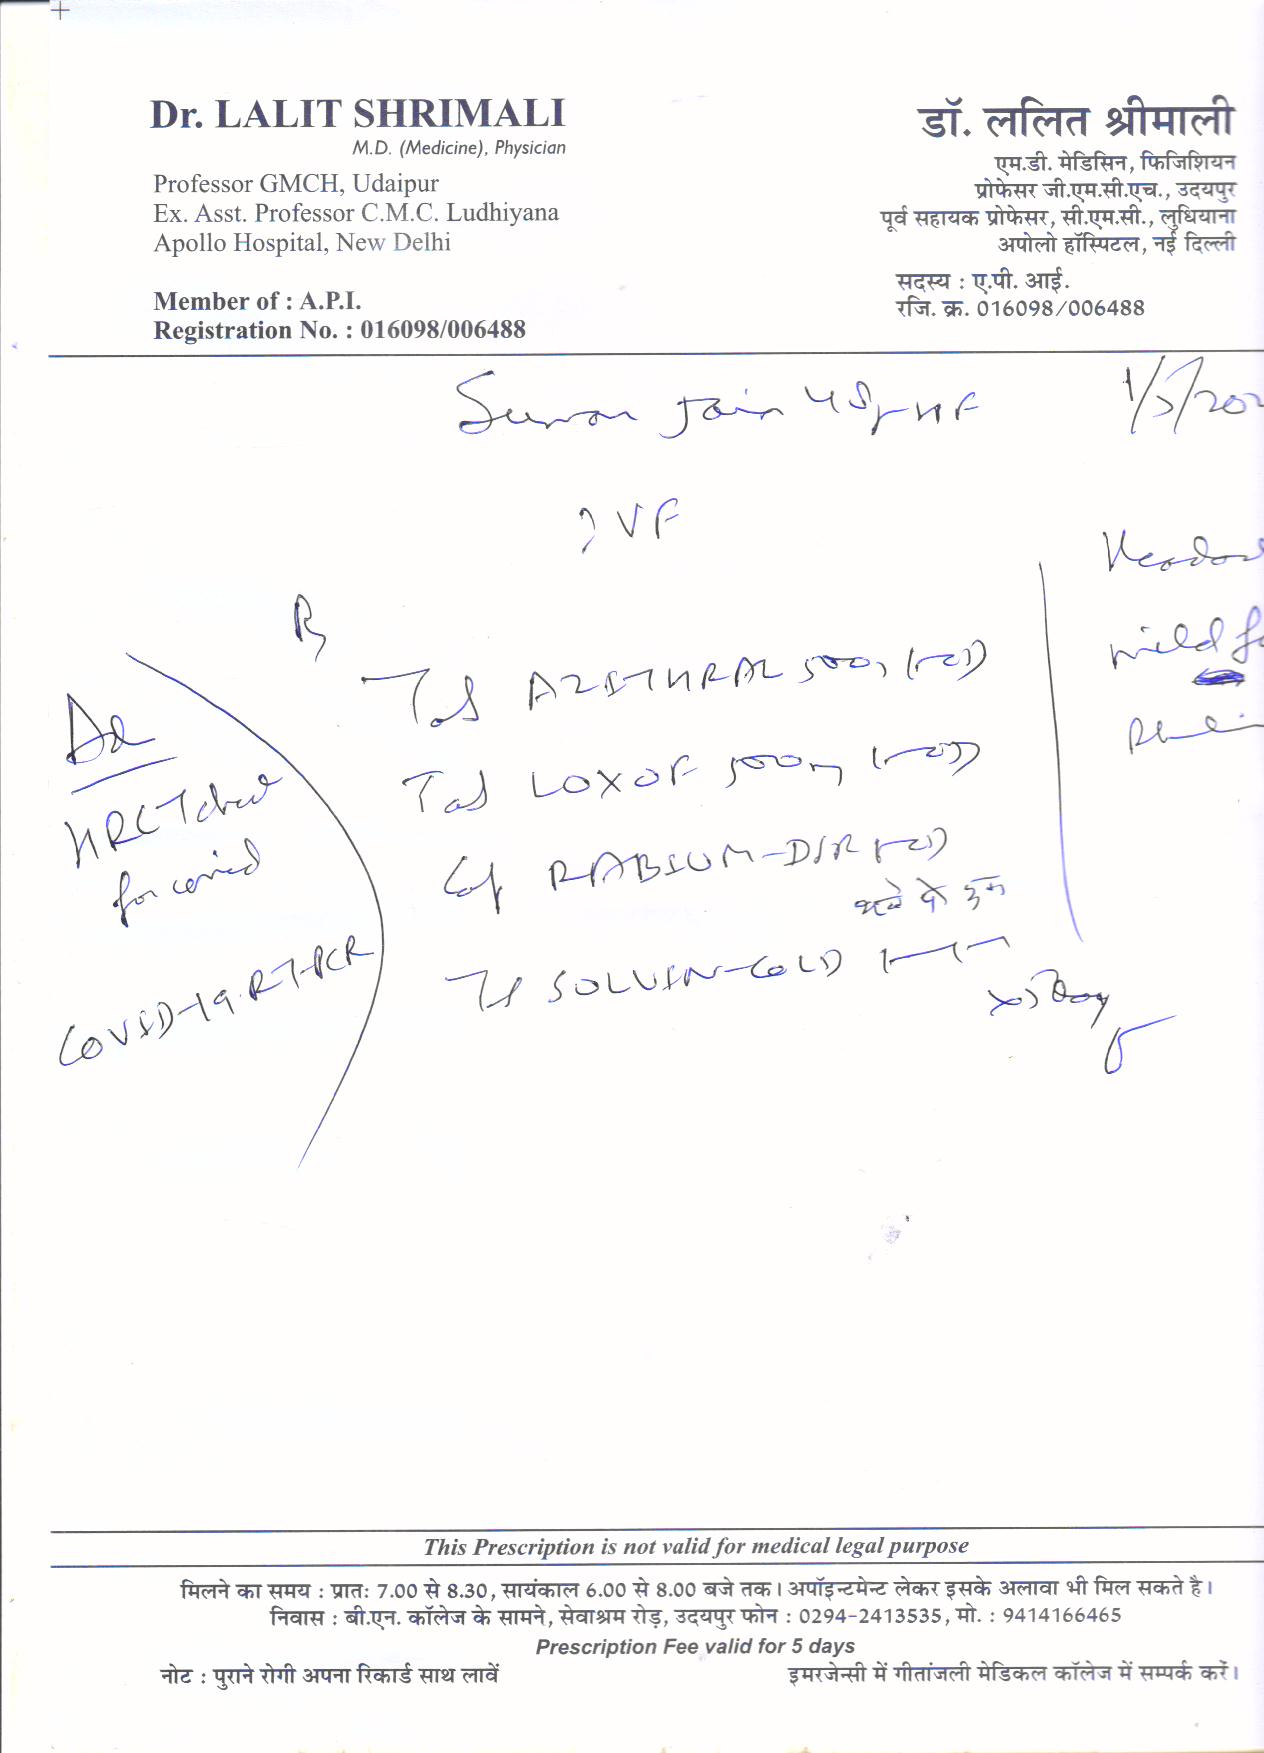 Dr. LALIT SHRIMALI
M.D. (Medicine), Physician
Professor GMCH, Udaipur
Ex. Asst. Professor C.M.C. Ludhiyana
Apollo Hospital, New Delhi
Member of : A.P.I.
Registration No. : 016098/006488
डॉ. ललित श्रीमाली
एम.डी. मेडिसिन, फिजिशियन
प्रोफेसर जी.एम.सी.एच., उदयपुर
पूर्व सहायक प्रोफेसर, सी.एम.सी., लुधियाना
अपोलो हॉस्पिटल, नई दिल्ली
सदस्य : ए.पी. आई.
रजि. क्र. 016098/006488
Suman Jain 45yr F
1/5/202
? VF
mild
Rx
Tab AZITHRAL 500
Tab LOXOF 500m
Cap RABIUM-DSR
Tab SOLVIN-COLD 1-1-1
x 5 Day
Ad
HRCT chest
for covid
COVID-19 RT-PCR
This Prescription is not valid for medical legal purpose
मिलने का समय : प्रातः 7.00 से 8.30, सायंकाल 6.00 से 8.00 बजे तक। अपॉइन्टमेन्ट लेकर इसके अलावा भी मिल सकते है।
निवास : बी.एन. कॉलेज के सामने, सेवाश्रम रोड़, उदयपुर फोन : 0294-2413535, मो. : 9414166465
Prescription Fee valid for 5 days
नोट : पुराने रोगी अपना रिकार्ड साथ लावें
इमरजेन्सी में गीतांजली मेडिकल कॉलेज में सम्पर्क करें।